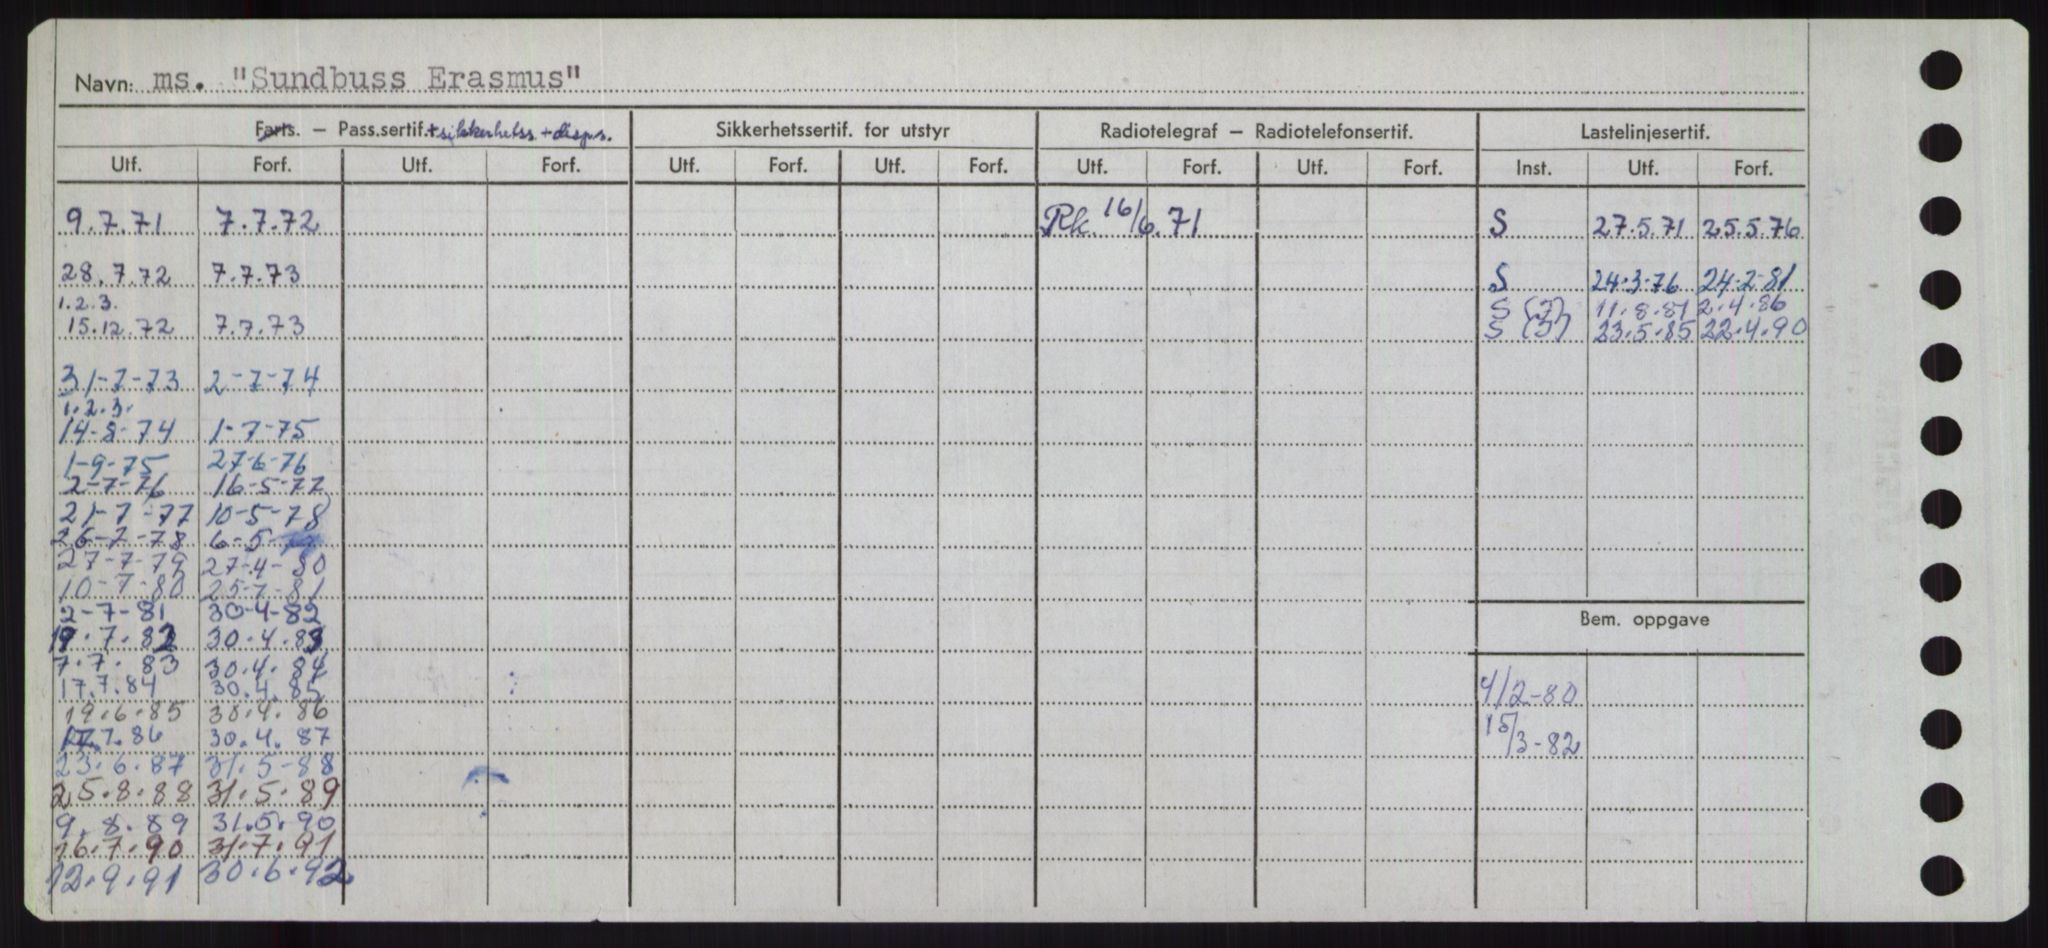 Navn: ms. "Sundbuss Erasmus"
Farts. – Pass.sertif. + sikkerhetss. + disp.s. Sikkerhetssertif. for utstyr Radiotelegraf – Radiotelefonsertif. Lastelinjesertif.
Utf. Forf. Utf. Forf. Utf. Forf. Utf. Forf. Utf. Forf. Utf. Forf. Inst. Utf. Forf.
9.7.71 7.7.72 Rk. 16/6.71 S 27.5.71 25.5.76
28.7.72 7.7.73 S 24.3.76 24-2-81
1.2.3. S 11.8.81 2.4.86
15.12.72 7.7.73 S 23.5.85 22.4.90
31-7-73 2-7-74
1.2.3.
14-8-74 1-7-75
1-9-75 27-6-76
2-7-76 16-5-77
21-7-77 10-5-78
26-7-78 6-5-
27-7-79 27-4-80
10-7-80 25-7-81
2-7-81 30-4-82
Bem. oppgave
19.7.82 30.4.83
7.7.83 30.4.84
17.7.84 30.4.85 4/2-80
19.6.85 30.4.86
17.7.86 30.4.87 15/3-82
23.6.87 31.5-88
25.8.88 31.5.89
9.8.89 31.5.90
16.7.90 31.7.91
12.9.91 30.6.92